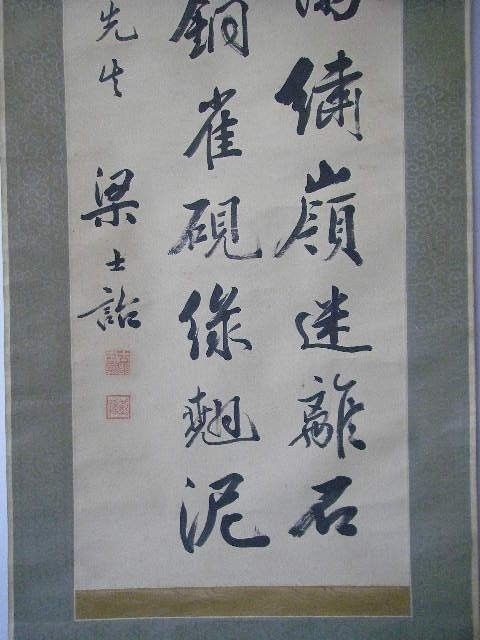 繡嶺迷離石
銅雀硯綠翹泥
先生
梁士詒